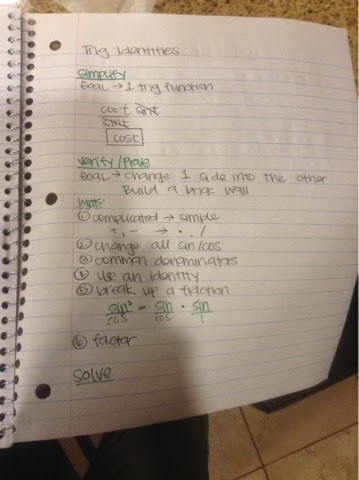 Trig Identities
Simplify
Goal → 1 trig function
cot t sint
sint
cost
Verify/Prove
Goal → change 1 side into the other
Build a brick wall
Hints:
① complicated → simple
+, - → •, /
② change all sin/cos
③ common denominators
④ use an identity
⑤ break up a fraction
sin² = sin • sin
cos cos 1
⑥ factor
Solve